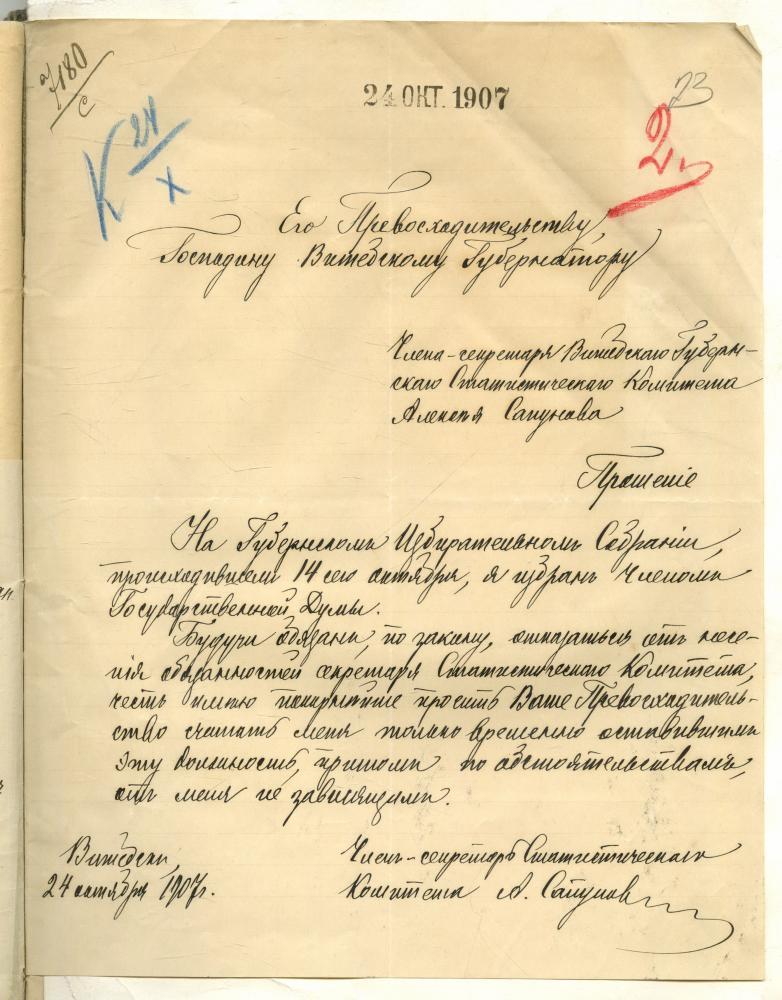 7180
с
24 ОКТ. 1907
73
К 24
X
2
Его Превосходительству,
Господину Витебскому Губернатору
Члена-секретаря Витебскаго Губерн-
скаго Статистическаго Комитета
Алексѣя Сапунова
Прошеніе
На Губернскомъ Избирательномъ Собраніи,
происходившем 14 сего октября, я избранъ Членомъ
Государственной Думы.
Будучи обязанъ, по закону, отказаться отъ несе-
нія обязанностей секретаря Статистическаго Комитета,
честь имѣю покорнѣйше просить Ваше Превосходитель-
ство считать меня только временно оставившимъ
эту должность, притомъ по обстоятельствамъ,
отъ меня не зависящимъ.
Витебскъ,
24 октября 1907г.
Членъ-секретарь Статистическаго
Комитета А. Сапунов